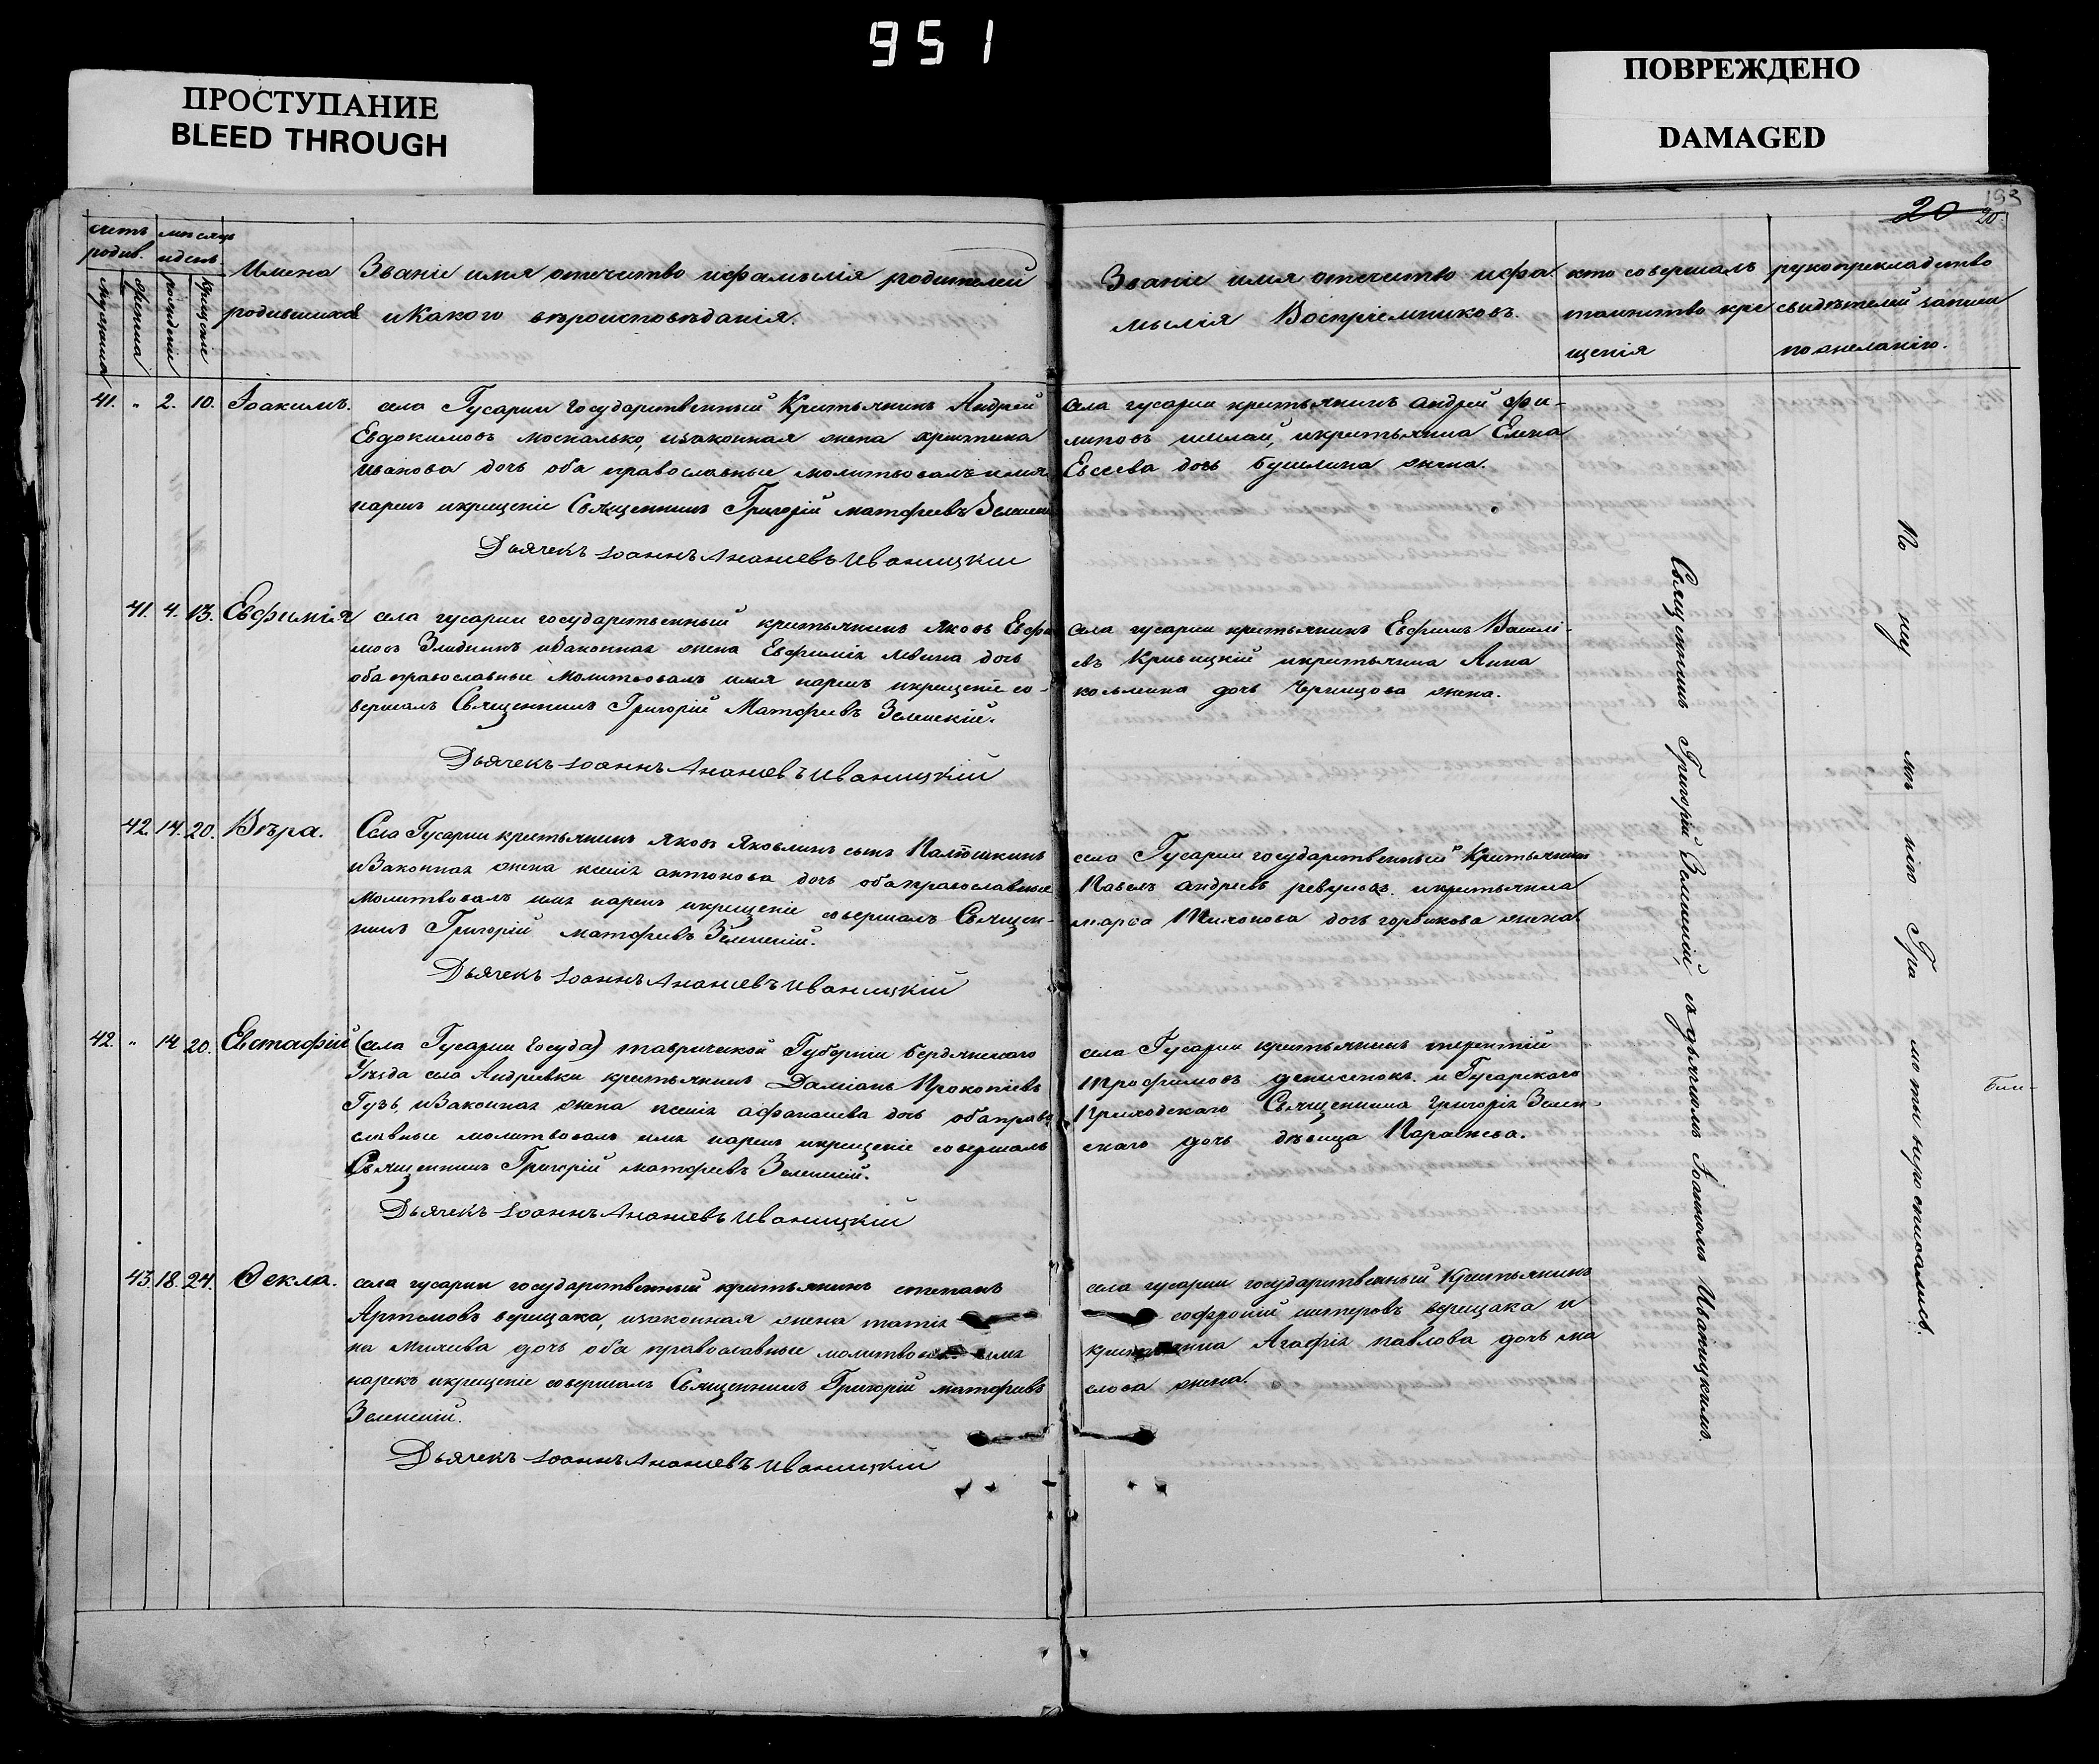 951
ПРОСТУПАНИЕ
BLEED THROUGH
ПОВРЕЖДЕНО
DAMAGED
193
20
20.
счетъ родив.
мужеска
женска
мѣсяцъ и день
рожденіе
крещеніе
Имена
родившихся
Званіе имя отечество и фамылія родителей
и Какого вѣроисповѣданія.
Званіе имя отечество и фа
мылія Воспріемниковъ.
кто совершалъ
таинство кре
щенія
рукоприкладство
свидѣтелей записи
по желанію.
41. " 2. 10. Іоакимъ.
села Гусарки государственный Крестьянинъ Андрей
Евдокимовъ москалько, и законная жена христина
иванова дочь оба православные молитвовалъ имя
нарекъ и крещеніе Священникъ Григорій матфеевъ
Дьячекъ Іоаннъ Ананіевъ Иваницкій
села гусарки крестьянинъ андрей фи-
липовъ и крестьянка Елена
Евсеева дочь жена.
41. 4. 13. Евфимія
села гусарки государственный крестьянинъ яковъ
мовъ и Законная жена Евфимія дочь
оба православные молитвовалъ имя нарекъ и крещеніе со-
вершалъ Священникъ Григорій Матфеевъ Зеленскій.
Дьячекъ Іоаннъ Ананіевъ Иваницкій
села гусарки крестьянинъ Евфимъ Василі-
евъ Кривицкій и крестьянка Анна
козьмина дочь жена.
42. 14. 20. Вѣра.
Села Гусарки крестьянинъ яковъ Яковлевъ сынъ
и Законная жена ксенія антонова дочь оба православные
молитвовалъ имя нарекъ и крещеніе совершалъ Священ-
никъ Григорій матфеевъ Зеленскій.
Дьячекъ Іоаннъ Ананіевъ Иваницкій
села Гусарки государственный Крестьянинъ
Павелъ андреевъ и крестьянка
марфа дочь горбикова жена
42. " 14 20. Евстафій
(села Гусарки Госуда) таврической Губерніи бердянскаго
Уѣзда села Андреевки крестьянинъ Даміанъ Прокопіевъ
Гузь, и Законная жена ксенія афанасиева дочь оба право
славные молитвовалъ имя нарекъ и крещеніе совершалъ
Священникъ Григорій матфеевъ Зеленскій.
Дьячекъ Іоаннъ Ананіевъ Иваницкій
села Гусарки крестьянинъ терентій
трофимовъ денисенокъ. и Гусарскаго
Приходскаго Священника Григорія Зелен-
скаго дочь дѣвица Параскева.
43. 18. 24. Ѳекла.
села гусарки государственный крестьянинъ степанъ
Артемовъ верещака, и законная жена
на дочь оба православные имя
нарекъ и крещеніе совершалъ Священникъ Григорій матфеевъ
Зеленскій.
Дьячекъ Іоаннъ Ананіевъ Иваницкій
села гусарки государственный Крестьянинъ
софроній верещака и
Агафія павлова дочь ма
слова жена.
Священникъ Григорій Зеленскій, съ дьячкомъ Іоанномъ Иваницкимъ.